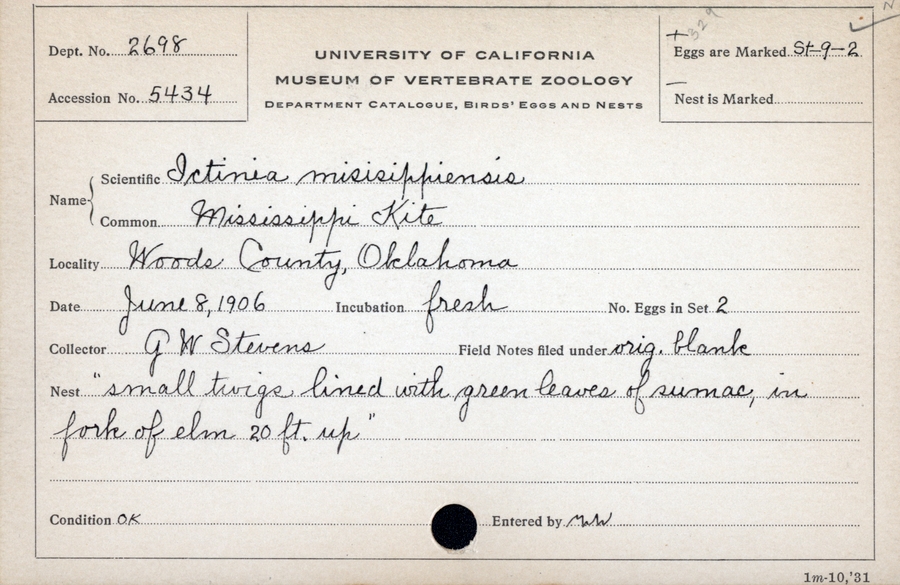 329
Dept. No. 2698
Accession No. 5434
UNIVERSITY OF CALIFORNIA
MUSEUM OF VERTEBRATE ZOOLOGY
DEPARTMENT CATALOGUE, BIRDS' EGGS AND NESTS
+
Eggs are Marked St-9-2
—
Nest is Marked
Name
Scientific Ictinia misisippiensis
Common Mississippi Kite
Locality Woods County, Oklahoma
Date June 8, 1906 Incubation fresh No. Eggs in Set 2
Collector G W Stevens Field Notes filed under orig. blank
Nest "small twigs lined with green leaves of sumac, in
fork of elm 20 ft. up"
Condition OK Entered by
1m-10,'31